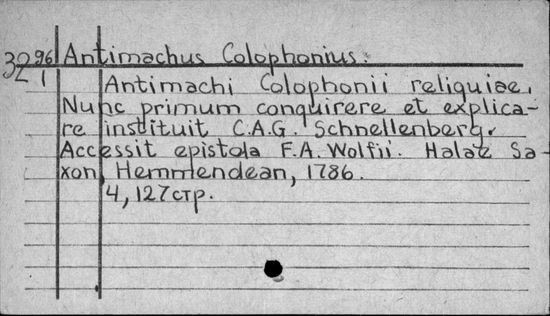 3296 Antimachus Colophonius.
1
Antimachi Colophonii reliquiae.
Nunc primum conquirere et explica-
re instituit C.A.G. Schnellenberg.
Accessit epistola F.A. Wolfii. Halae Sa-
xon, Hemmendean, 1786.
4, 127 стр.